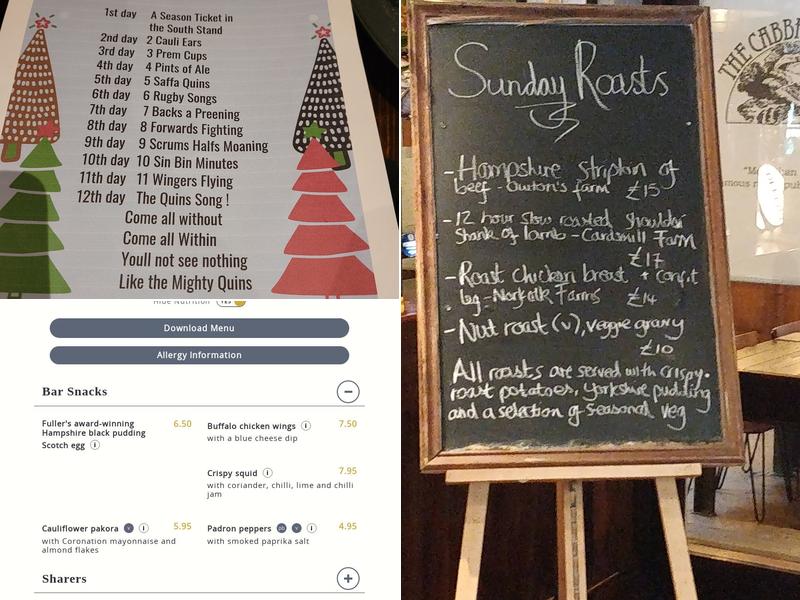 1st day A Season Ticket in
the South Stand
2nd day 2 Cauli Ears
3rd day 3 Prem Cups
4th day 4 Pints of Ale
5th day 5 Saffa Quins
6th day 6 Rugby Songs
7th day 7 Backs a Preening
8th day 8 Forwards Fighting
9th day 9 Scrums Halfs Moaning
10th day 10 Sin Bin Minutes
11th day 11 Wingers Flying
12th day The Quins Song !
Come all without
Come all Within
Youll not see nothing
Like the Mighty Quins
Hide Nutrition YES
Download Menu
Allergy Information
Bar Snacks
Fuller's award-winning 6.50
Hampshire black pudding
Scotch egg
Buffalo chicken wings 7.50
with a blue cheese dip
Crispy squid 7.95
with coriander, chilli, lime and chilli
jam
Cauliflower pakora v 5.95
with Coronation mayonnaise and
almond flakes
Padron peppers pb v 4.95
with smoked paprika salt
Sharers
Sunday Roasts
- Hampshire striploin of
beef - Owton's farm £15
- 12 hour slow roasted shoulder
Shank of lamb - Cardsmill Farm
£17
- Roast Chicken breast + confit
leg - Norfolk Farms £14
- Nut roast (v), veggie gravy
£10
All roasts are served with crispy
roast potatoes, Yorkshire pudding
and a selection of seasonal veg
THE CABBA